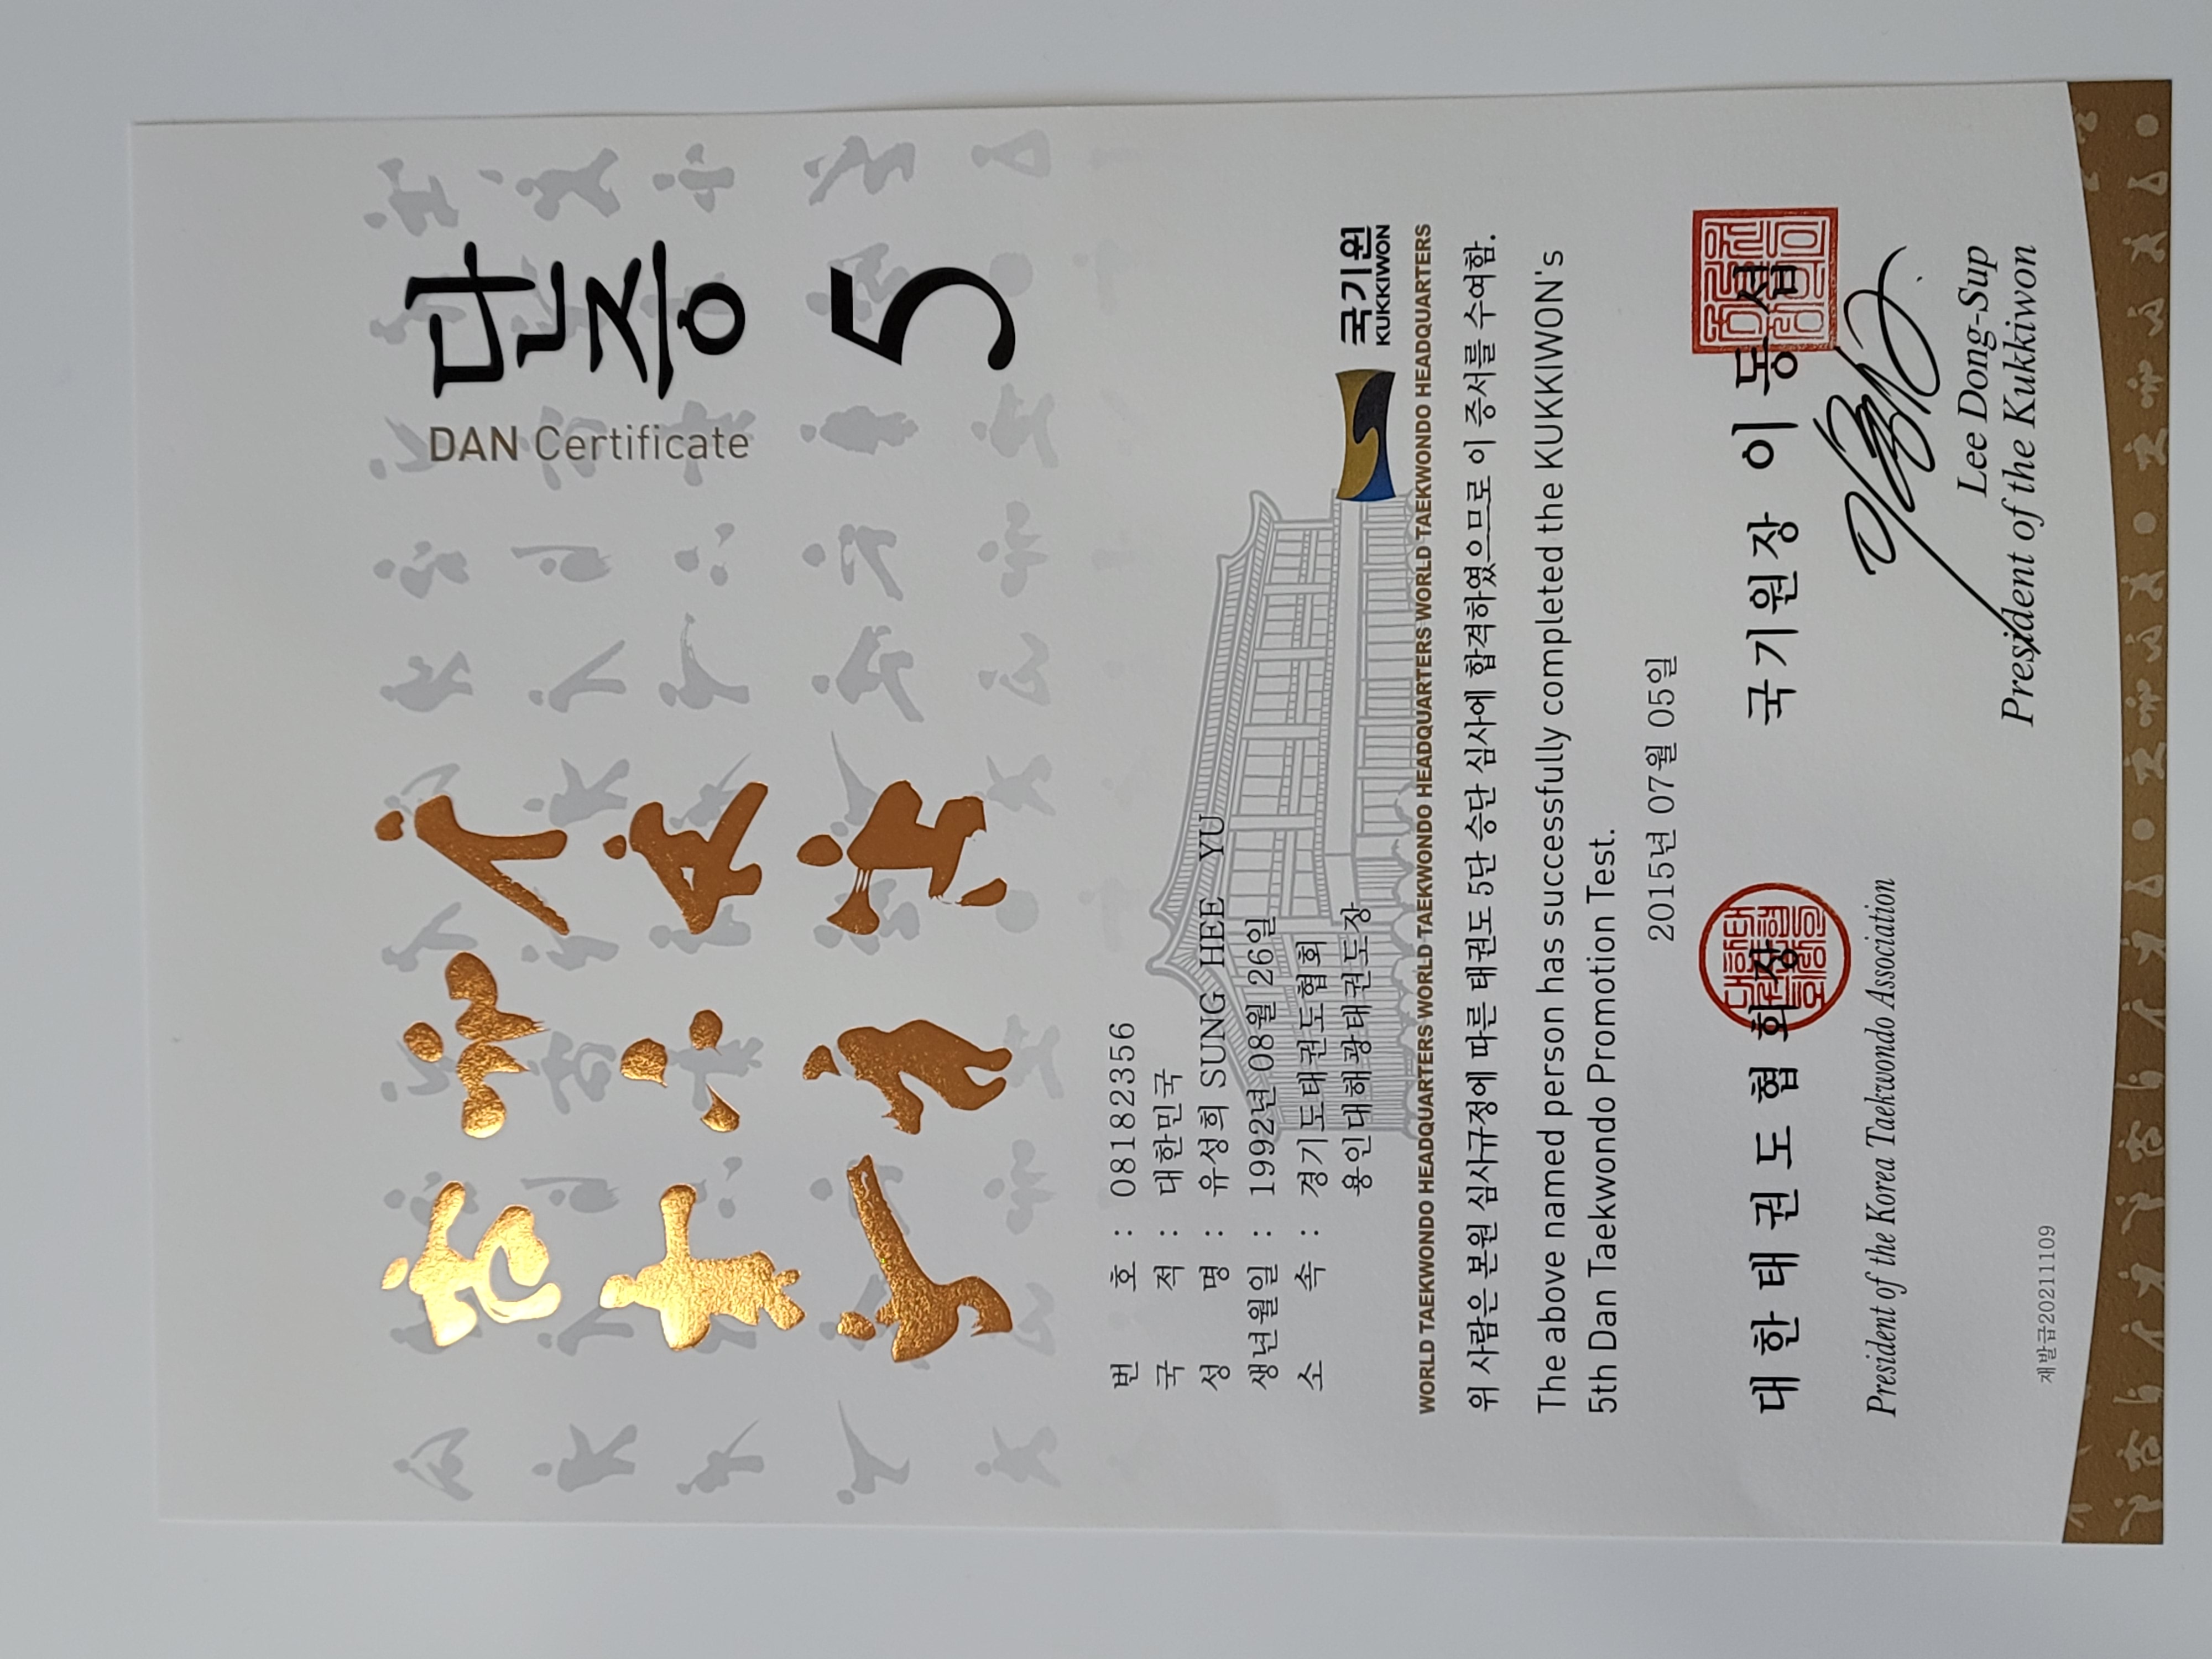 단증
DAN Certificate
5
번 호 : 08182356
국 적 : 대한민국
성 명 : 유성희 SUNG HEE YU
생년월일 : 1992년 08월 26일
소 속 : 경기도태권도협회
용인대해광태권도장
국기원
KUKKIWON
WORLD TAEKWONDO HEADQUARTERS WORLD TAEKWONDO HEADQUARTERS WORLD TAEKWONDO HEADQUARTERS WORLD TAEKWONDO HEADQUARTERS WORLD TAEKWONDO HEADQUARTERS
위 사람은 본원 심사규정에 따른 태권도 5단 승단 심사에 합격하였으므로 이 증서를 수여함.
The above named person has successfully completed the KUKKIWON's
5th Dan Taekwondo Promotion Test.
2015년 07월 05일
대한태권도협회장
President of the Korea Taekwondo Association
국기원장 이동섭
Lee Dong-Sup
President of the Kukkiwon
재발급20211109